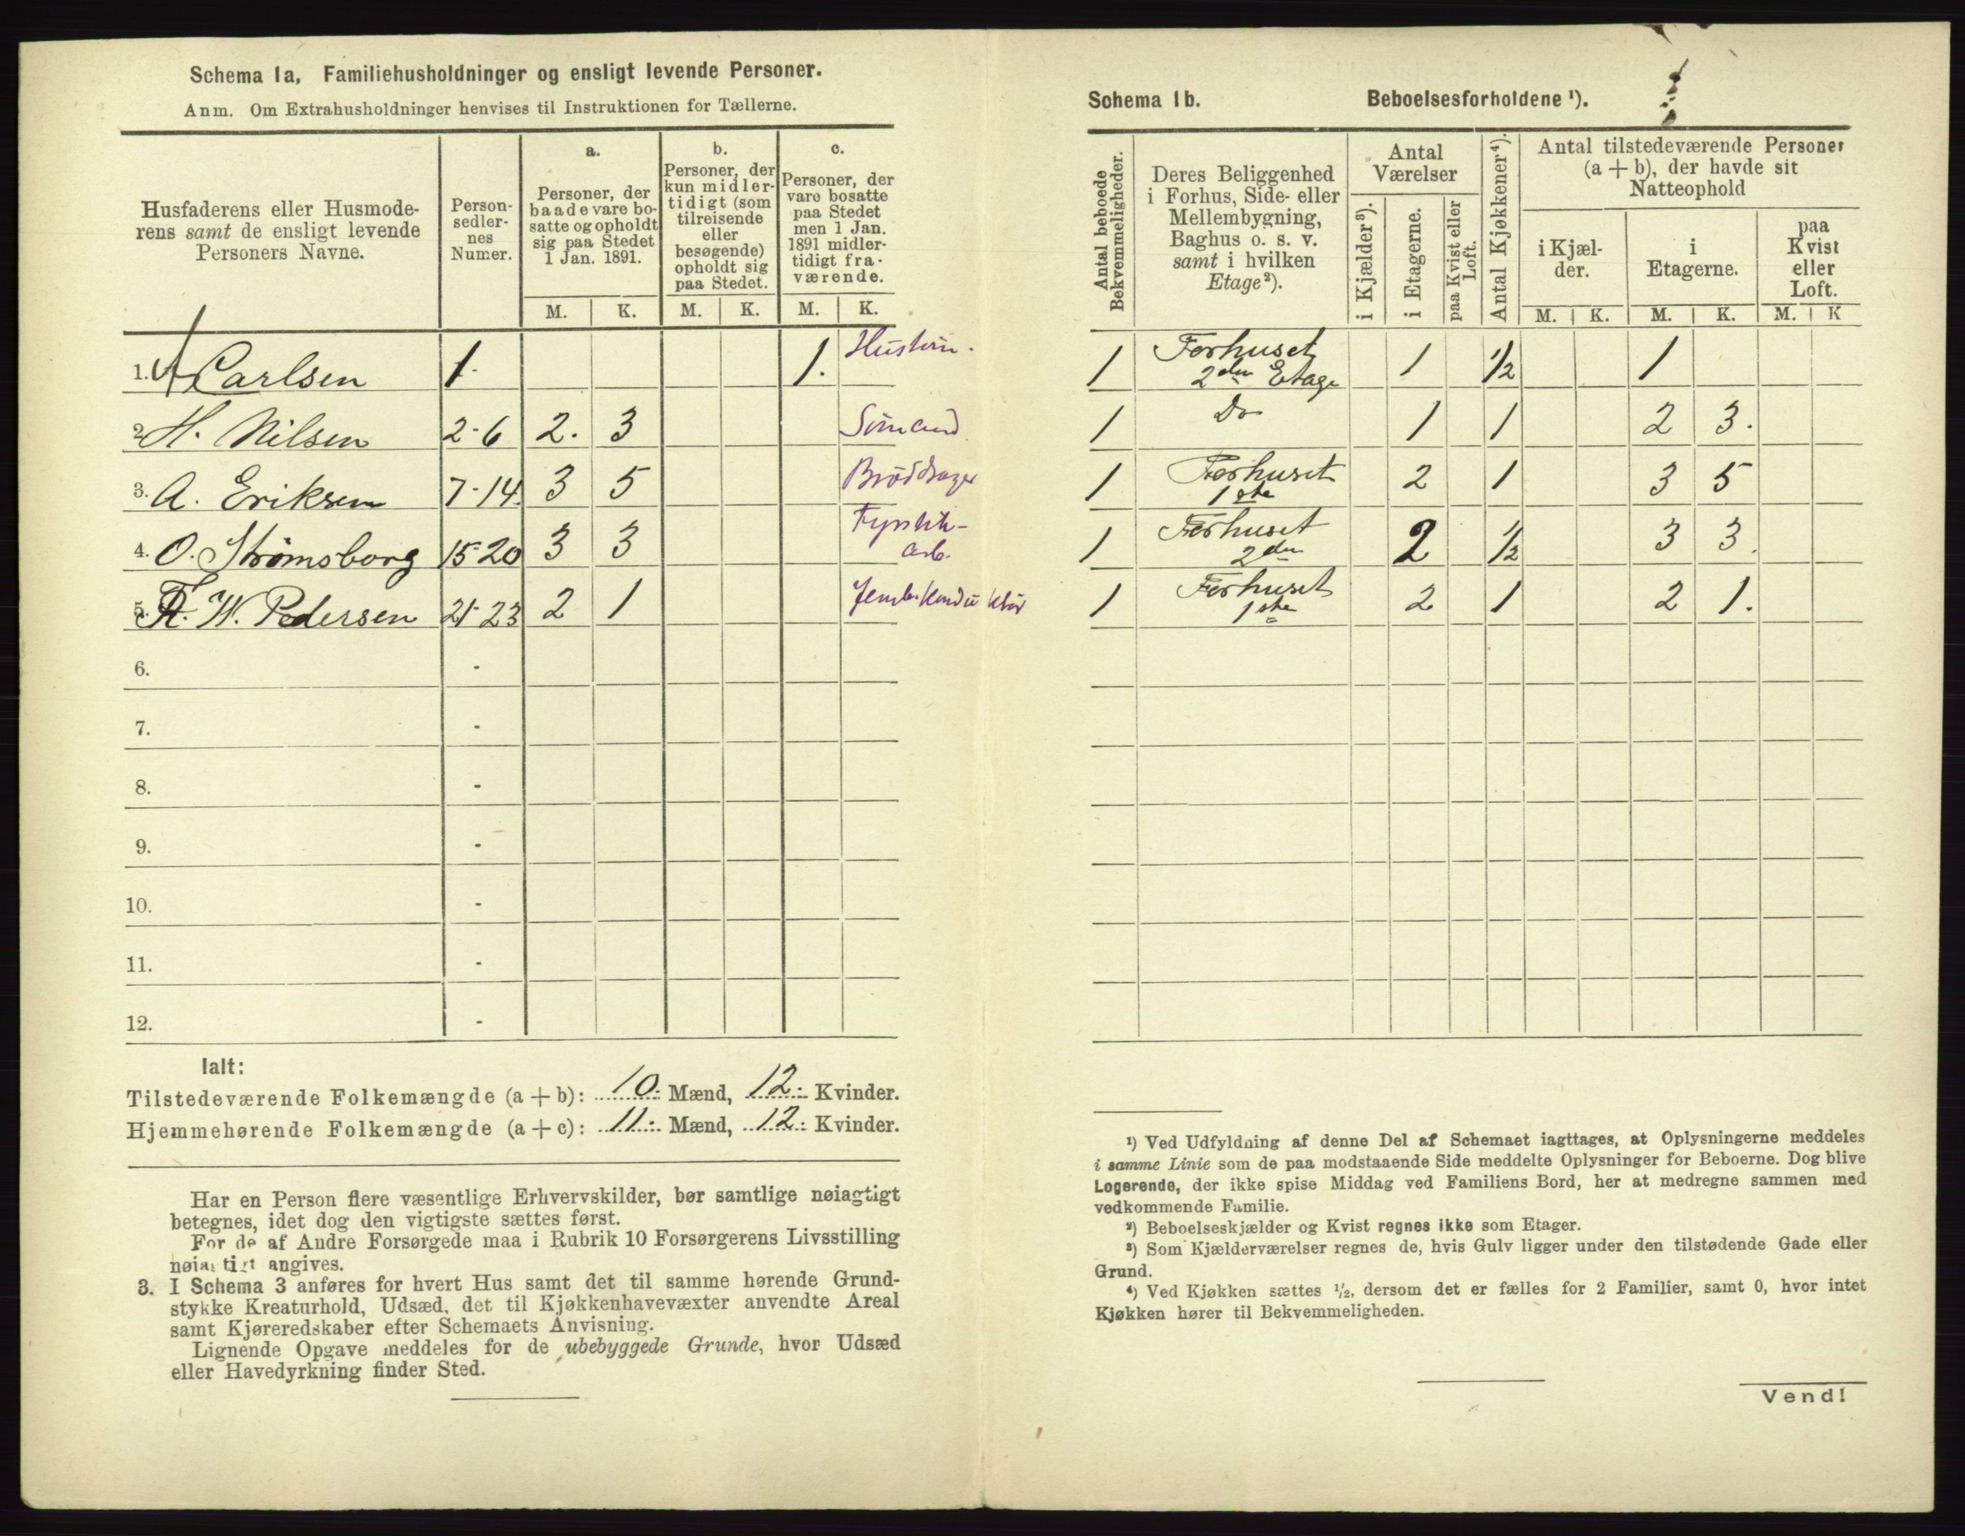 Schema 1a, Familiehusholdninger og ensligt levende Personer.
Anm. Om Extrahusholdninger henvises til Instruktionen for Tællerne.
Husfaderens eller Husmode-
rens samt de ensligt levende
Personers Navne.
Person-
sedler-
nes
Numer.
a.
Personer, der
baade vare bo-
satte og opholdt
sig paa Stedet
1 Jan. 1891.
b.
Personer, der
kun midler-
tidigt (som
tilreisende
eller
besøgende)
opholdt sig
paa Stedet.
c.
Personer, der
vare bosatte
paa Stedet
men 1 Jan.
1891 midler-
tidigt fra-
værende.
M. K. M. K. M. K.
1. Carlsen 1. 1.
2. H. Nilsen 2-6 2. 3 Sømand
3. A. Eriksen 7-14. 3 5
4. O. Strømsborg 15-20 3 3 Fyrstik-
arb.
5. W. Pedersen 21-23 2 1
6. -
7. -
8. -
9. -
10. -
11. -
12. -
Ialt:
Tilstedeværende Folkemængde (a + b): 10. Mænd, 12. Kvinder.
Hjemmehørende Folkemængde (a + c): 11. Mænd, 12. Kvinder.
Har en Person flere væsentlige Erhvervskilder, bør samtlige nøiagtigt
betegnes, idet dog den vigtigste sættes først.
For de af Andre Forsørgede maa i Rubrik 10 Forsørgerens Livsstilling
nøiagtigt angives.
3. I Schema 3 anføres for hvert Hus samt det til samme hørende Grund-
stykke Kreaturhold, Udsæd, det til Kjøkkenhavevæxter anvendte Areal
samt Kjøreredskaber efter Schemaets Anvisning.
Lignende Opgave meddeles for de ubebyggede Grunde, hvor Udsæd
eller Havedyrkning finder Sted.
Schema 1b. Beboelsesforholdene ¹).
Antal beboede
Bekvemmeligheder.
Deres Beliggenhed
i Forhus, Side- eller
Mellembygning,
Baghus o. s. v.
samt i hvilken
Etage²).
Antal
Værelser
i Kjælder³).
i Etagerne.
paa Kvist eller
Loft.
Antal Kjøkkener⁴).
Antal tilstedeværende Personer
(a + b), der havde sit
Natteophold
i Kjæl-
der.
i
Etagerne.
paa
Kvist
eller
Loft.
M. K. M. K. M. K
1 Forhuset
2den Etage 1 ½ 1
1 Do 1 1 2 3.
1 Forhuset
1ste 2 1 3 5
1 Forhuset
2den 2 ½ 3 3.
1 Forhuset
1ste 2 1 2 1.
¹) Ved Udfyldning af denne Del af Schemaet iagttages, at Oplysningerne meddeles
i samme Linie som de paa modstaaende Side meddelte Oplysninger for Beboerne. Dog blive
Logerende, der ikke spise Middag ved Familiens Bord, her at medregne sammen med
vedkommende Familie.
²) Beboelseskjælder og Kvist regnes ikke som Etager.
³) Som Kjælderværelser regnes de, hvis Gulv ligger under den tilstødende Gade eller
Grund.
⁴) Ved Kjøkken sættes ½, dersom det er fælles for 2 Familier, samt 0, hvor intet
Kjøkken hører til Bekvemmeligheden.
Vend!